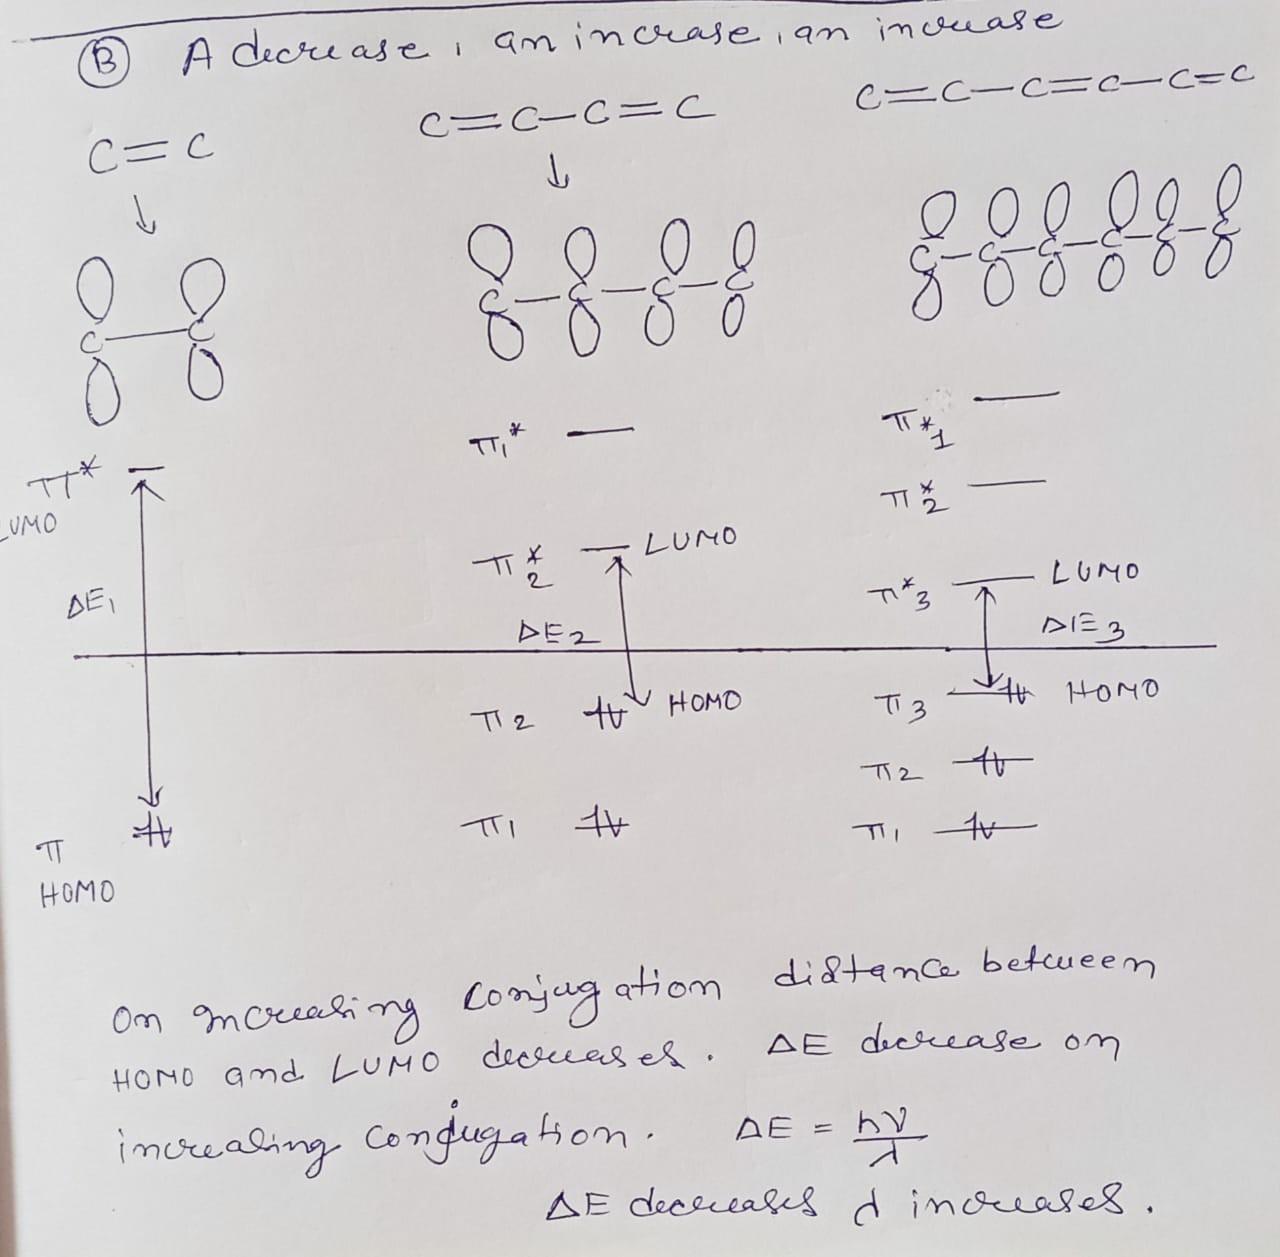 Ⓑ A decrease, an increase, an increase
C=C
C=C-C=C
C=C-C=C-C=C
↓
↓
C-C
C-C-C-C
C-C-C-C-C-C
π*
LUMO
ΔE₁
π
HOMO
π₁*
π₂* LUMO
ΔE2
π2 HOMO
π1
π*1
π*2
π*3 LUMO
ΔE3
π3 HOMO
π2
π1
On increasing conjugation distance between
HOMO and LUMO decreases. ΔE decrease on
increasing conjugation. ΔE = hν/λ
ΔE decreases λ increases.